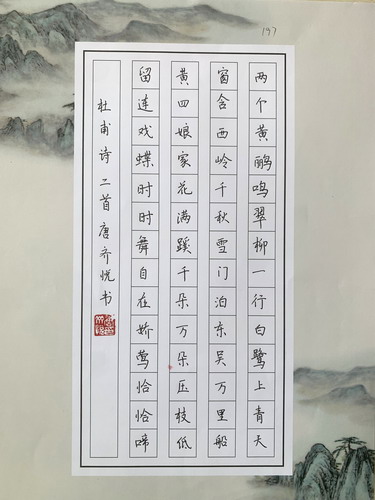 197
两个黄鹂鸣翠柳一行白鹭上青天
窗含西岭千秋雪门泊东吴万里船
黄四娘家花满蹊千朵万朵压枝低
留连戏蝶时时舞自在娇莺恰恰啼
杜甫诗二首唐齐悦书